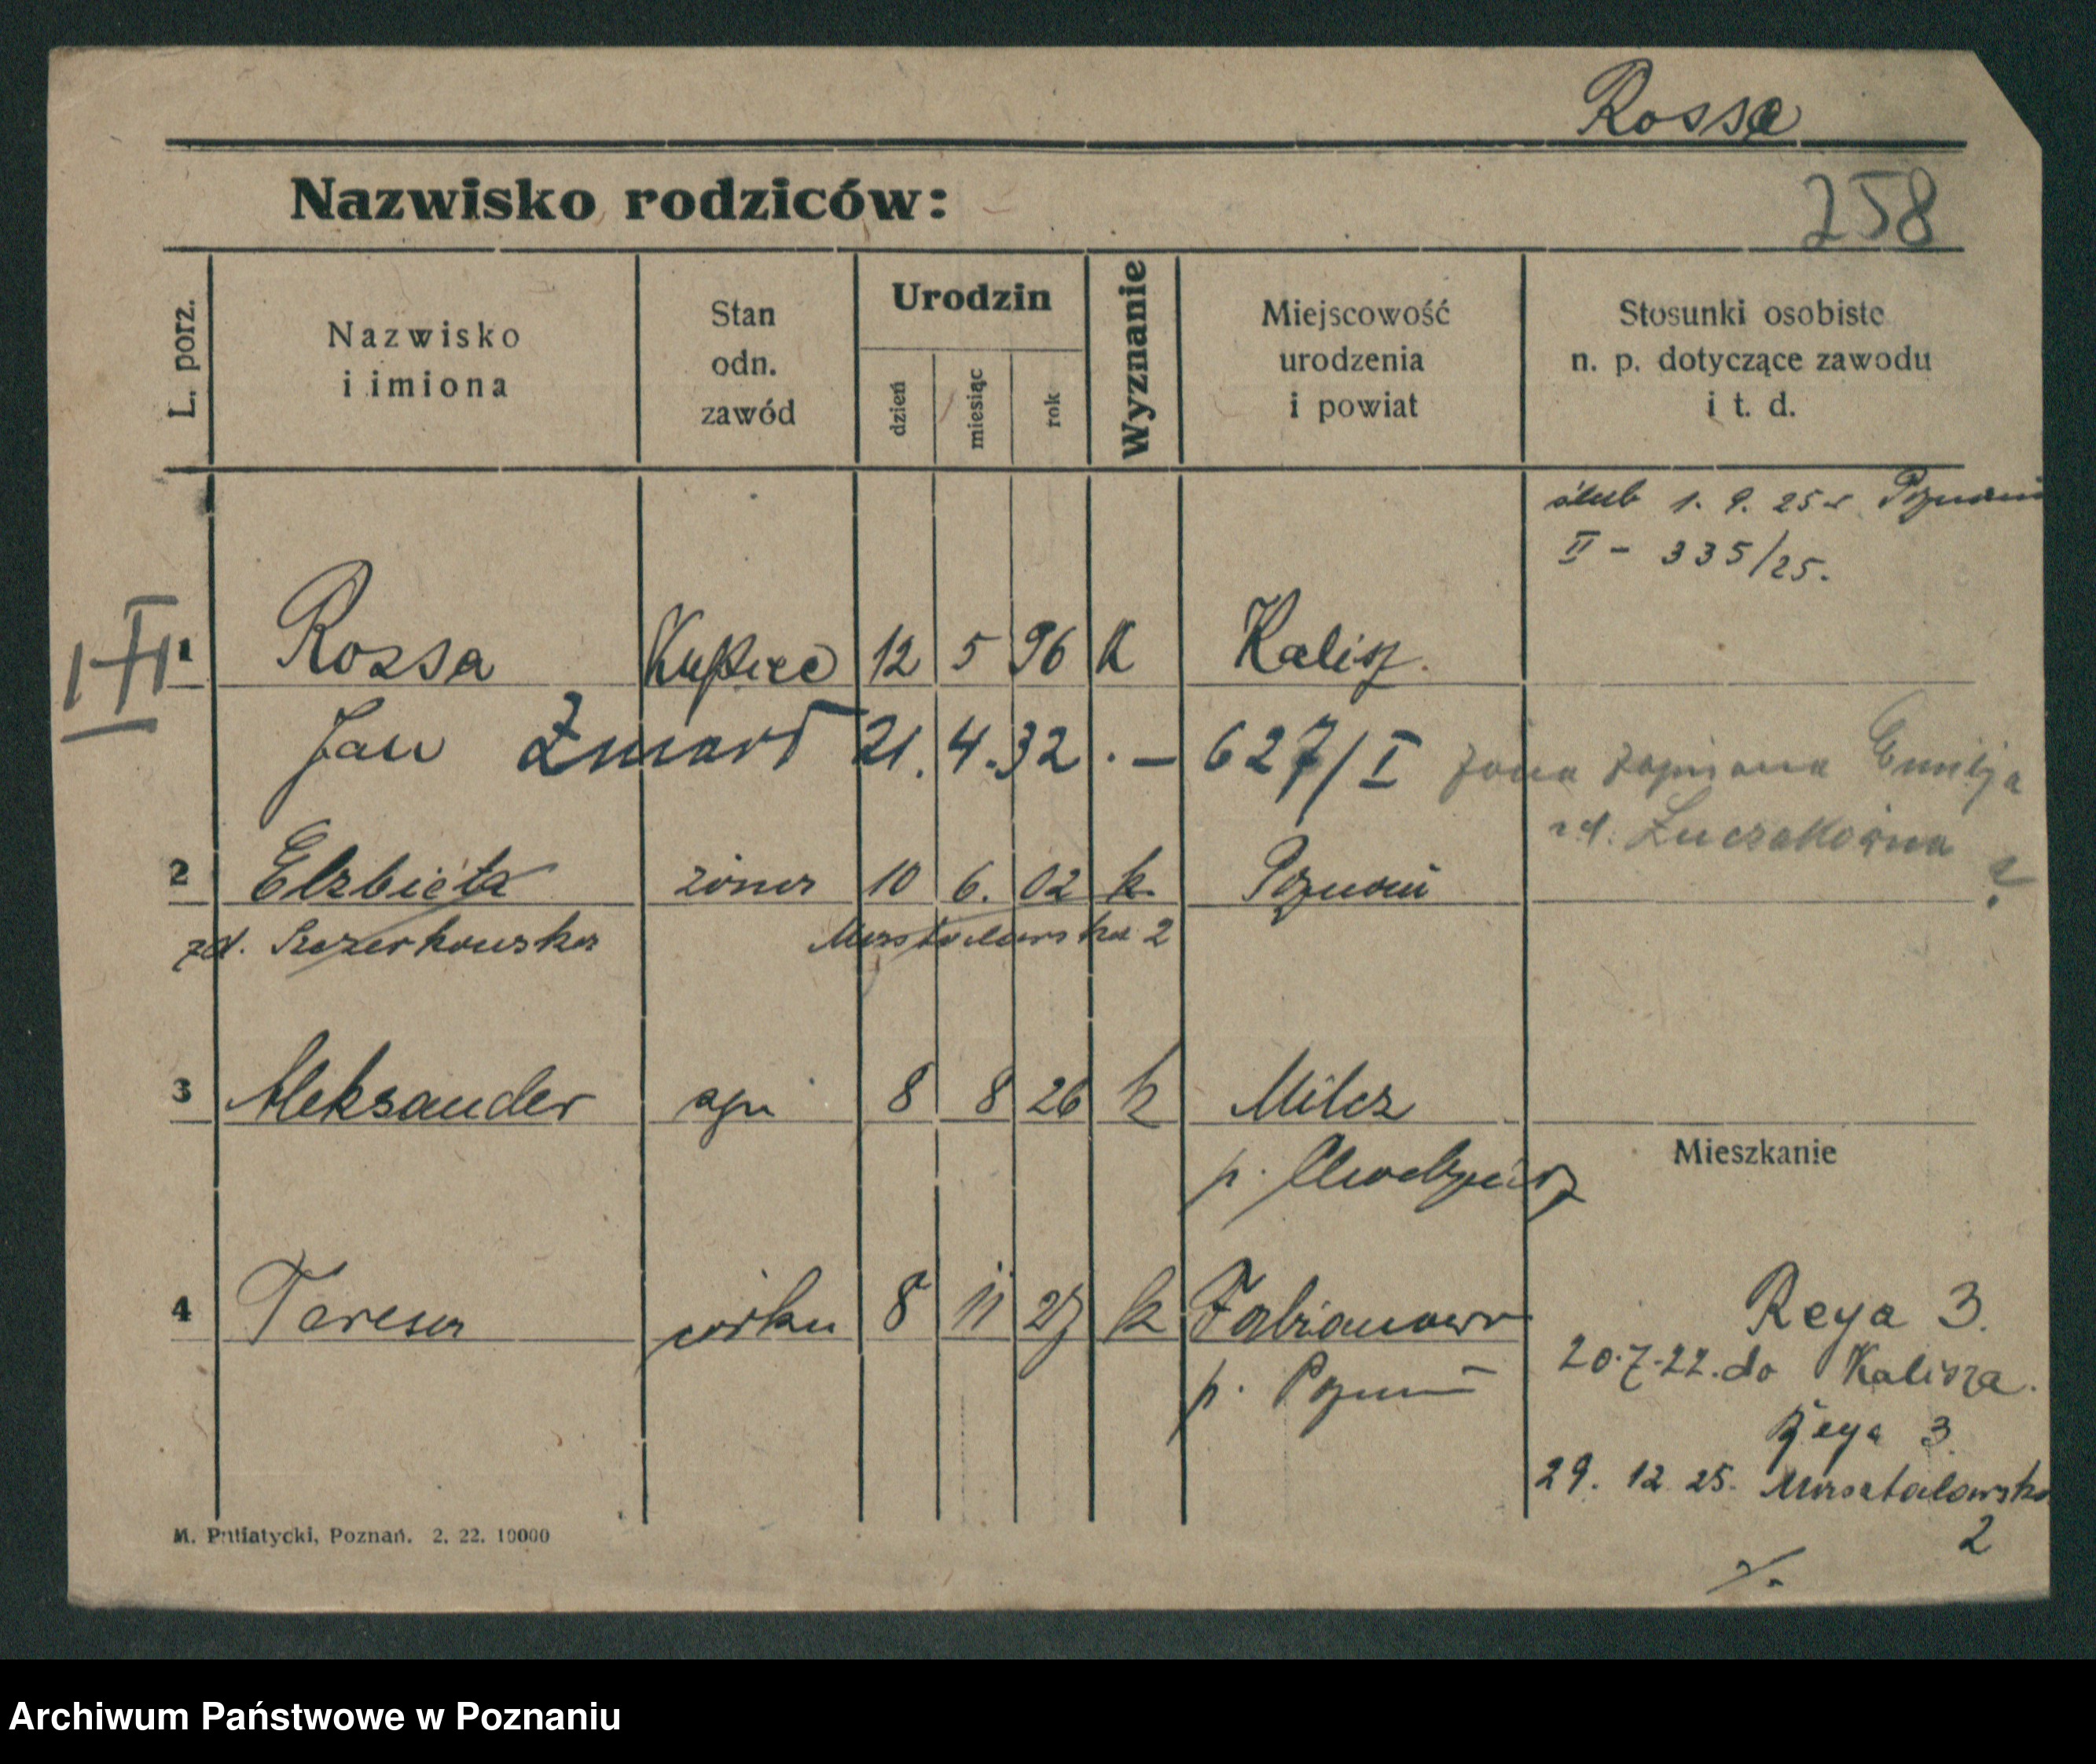 Rossa
258
Nazwisko rodziców:
L. porz.
Nazwisko
i imiona
Stan
odn.
zawód
Urodzin
dzień
miesiąc
rok
Wyznanie
Miejscowość
urodzenia
i powiat
Stosunki osobiste
n. p. dotyczące zawodu
i t. d.
ślub 1. 9. 25 r. Poznań
II - 335/25.
1 Rossa Kupiec 12 5 96 K Kalisz.
Jan Zmarł 21. 4. 32. — 627/I
żona zapisana Emilja
zd. Łuczakówna ?
2 Elżbieta żona 10 6. 02 k. Poznań
zd. Masztalarska 2
3 Aleksander syn 8 8 26 k Milcz
p. Chodzież
Mieszkanie
4 Teresa córka 8 11 27 k Fabianowo
p. Poznań
Reya 3.
20.7.22. do Kalisza.
Reya 3
29. 12 25. Masztalarska
2
M. Putiatycki, Poznań. 2. 22. 10000
Archiwum Państwowe w Poznaniu